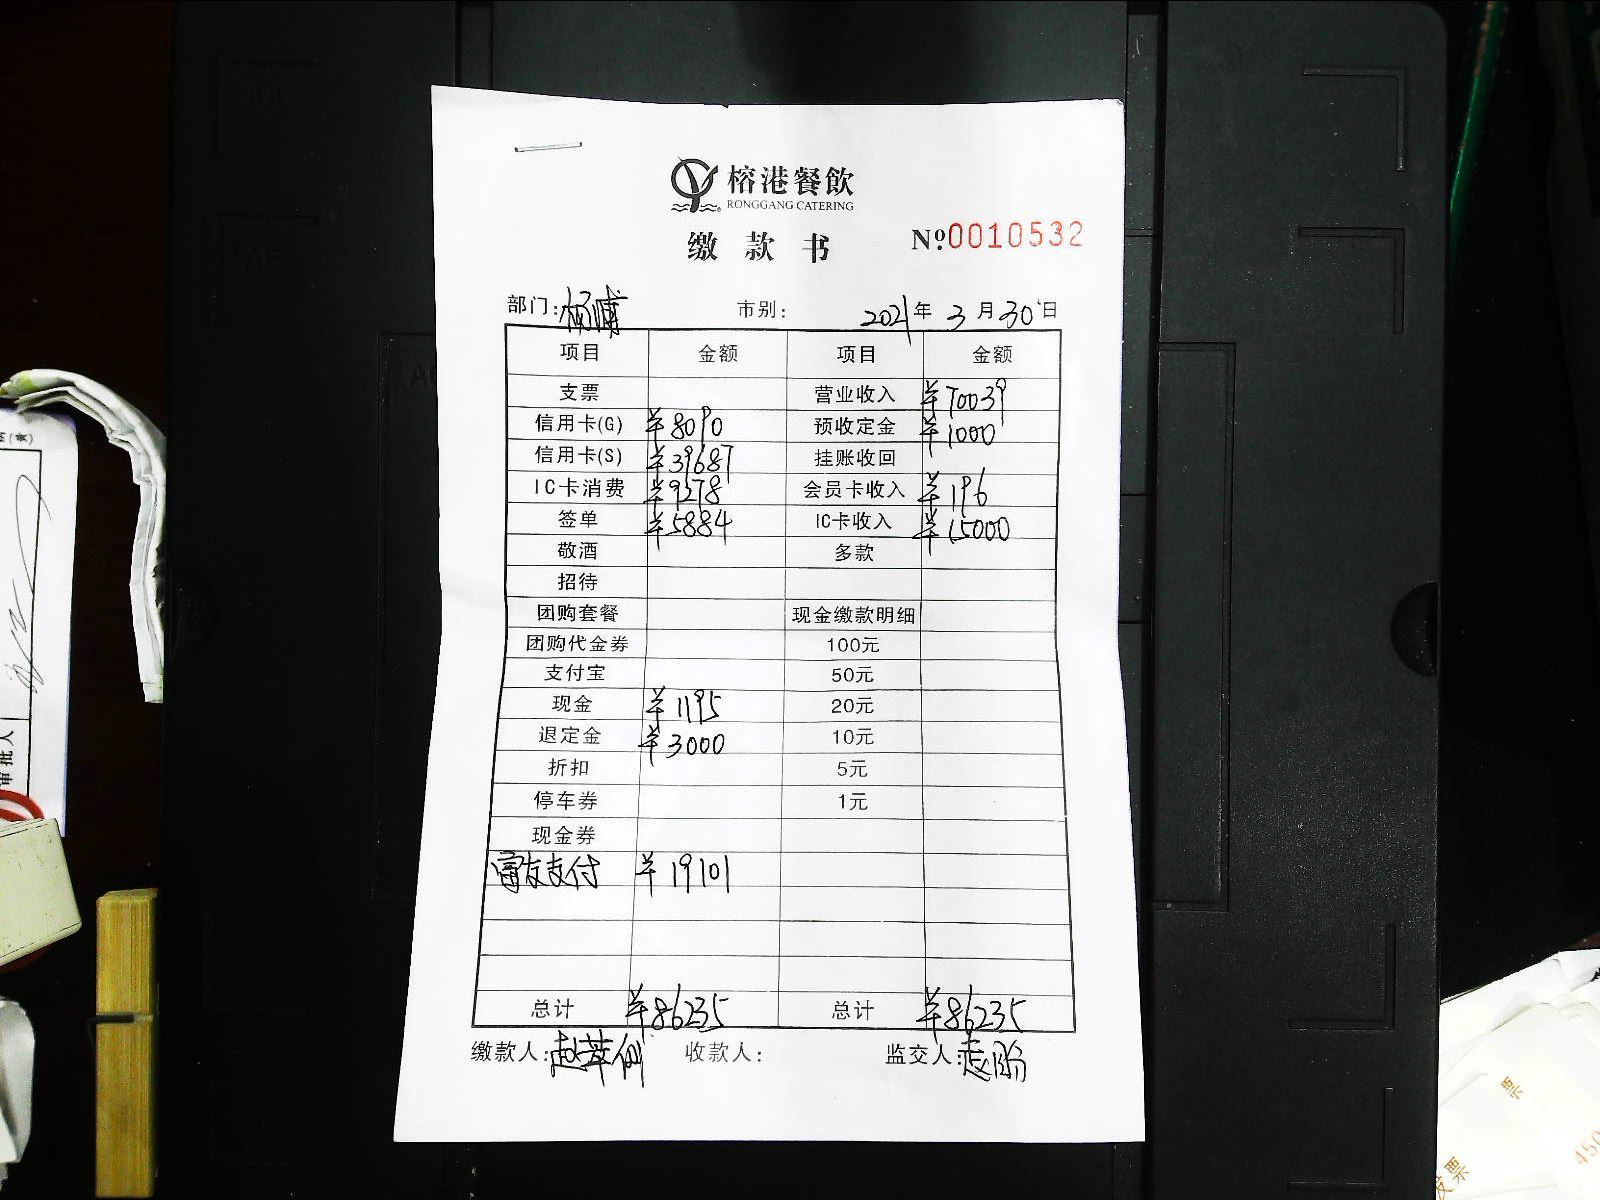 榕港餐飲
RONGGANG CATERING
缴款书
Nº0010532
部门:杨浦 市别: 2021年3月30日
项目 金额 项目 金额
支票 营业收入 ¥70039
信用卡(G) ¥8090 预收定金 ¥1000
信用卡(S) ¥39687 挂账收回
IC卡消费 ¥9278 会员卡收入 ¥196
签单 ¥5884 IC卡收入 ¥15000
敬酒 多款
招待
团购套餐 现金缴款明细
团购代金券 100元
支付宝 50元
现金 ¥1195 20元
退定金 ¥3000 10元
折扣 5元
停车券 1元
现金券
富友支付 ¥19101
总计 ¥86235 总计 ¥86235
缴款人: 收款人: 监交人:
审批人
发票
票
450